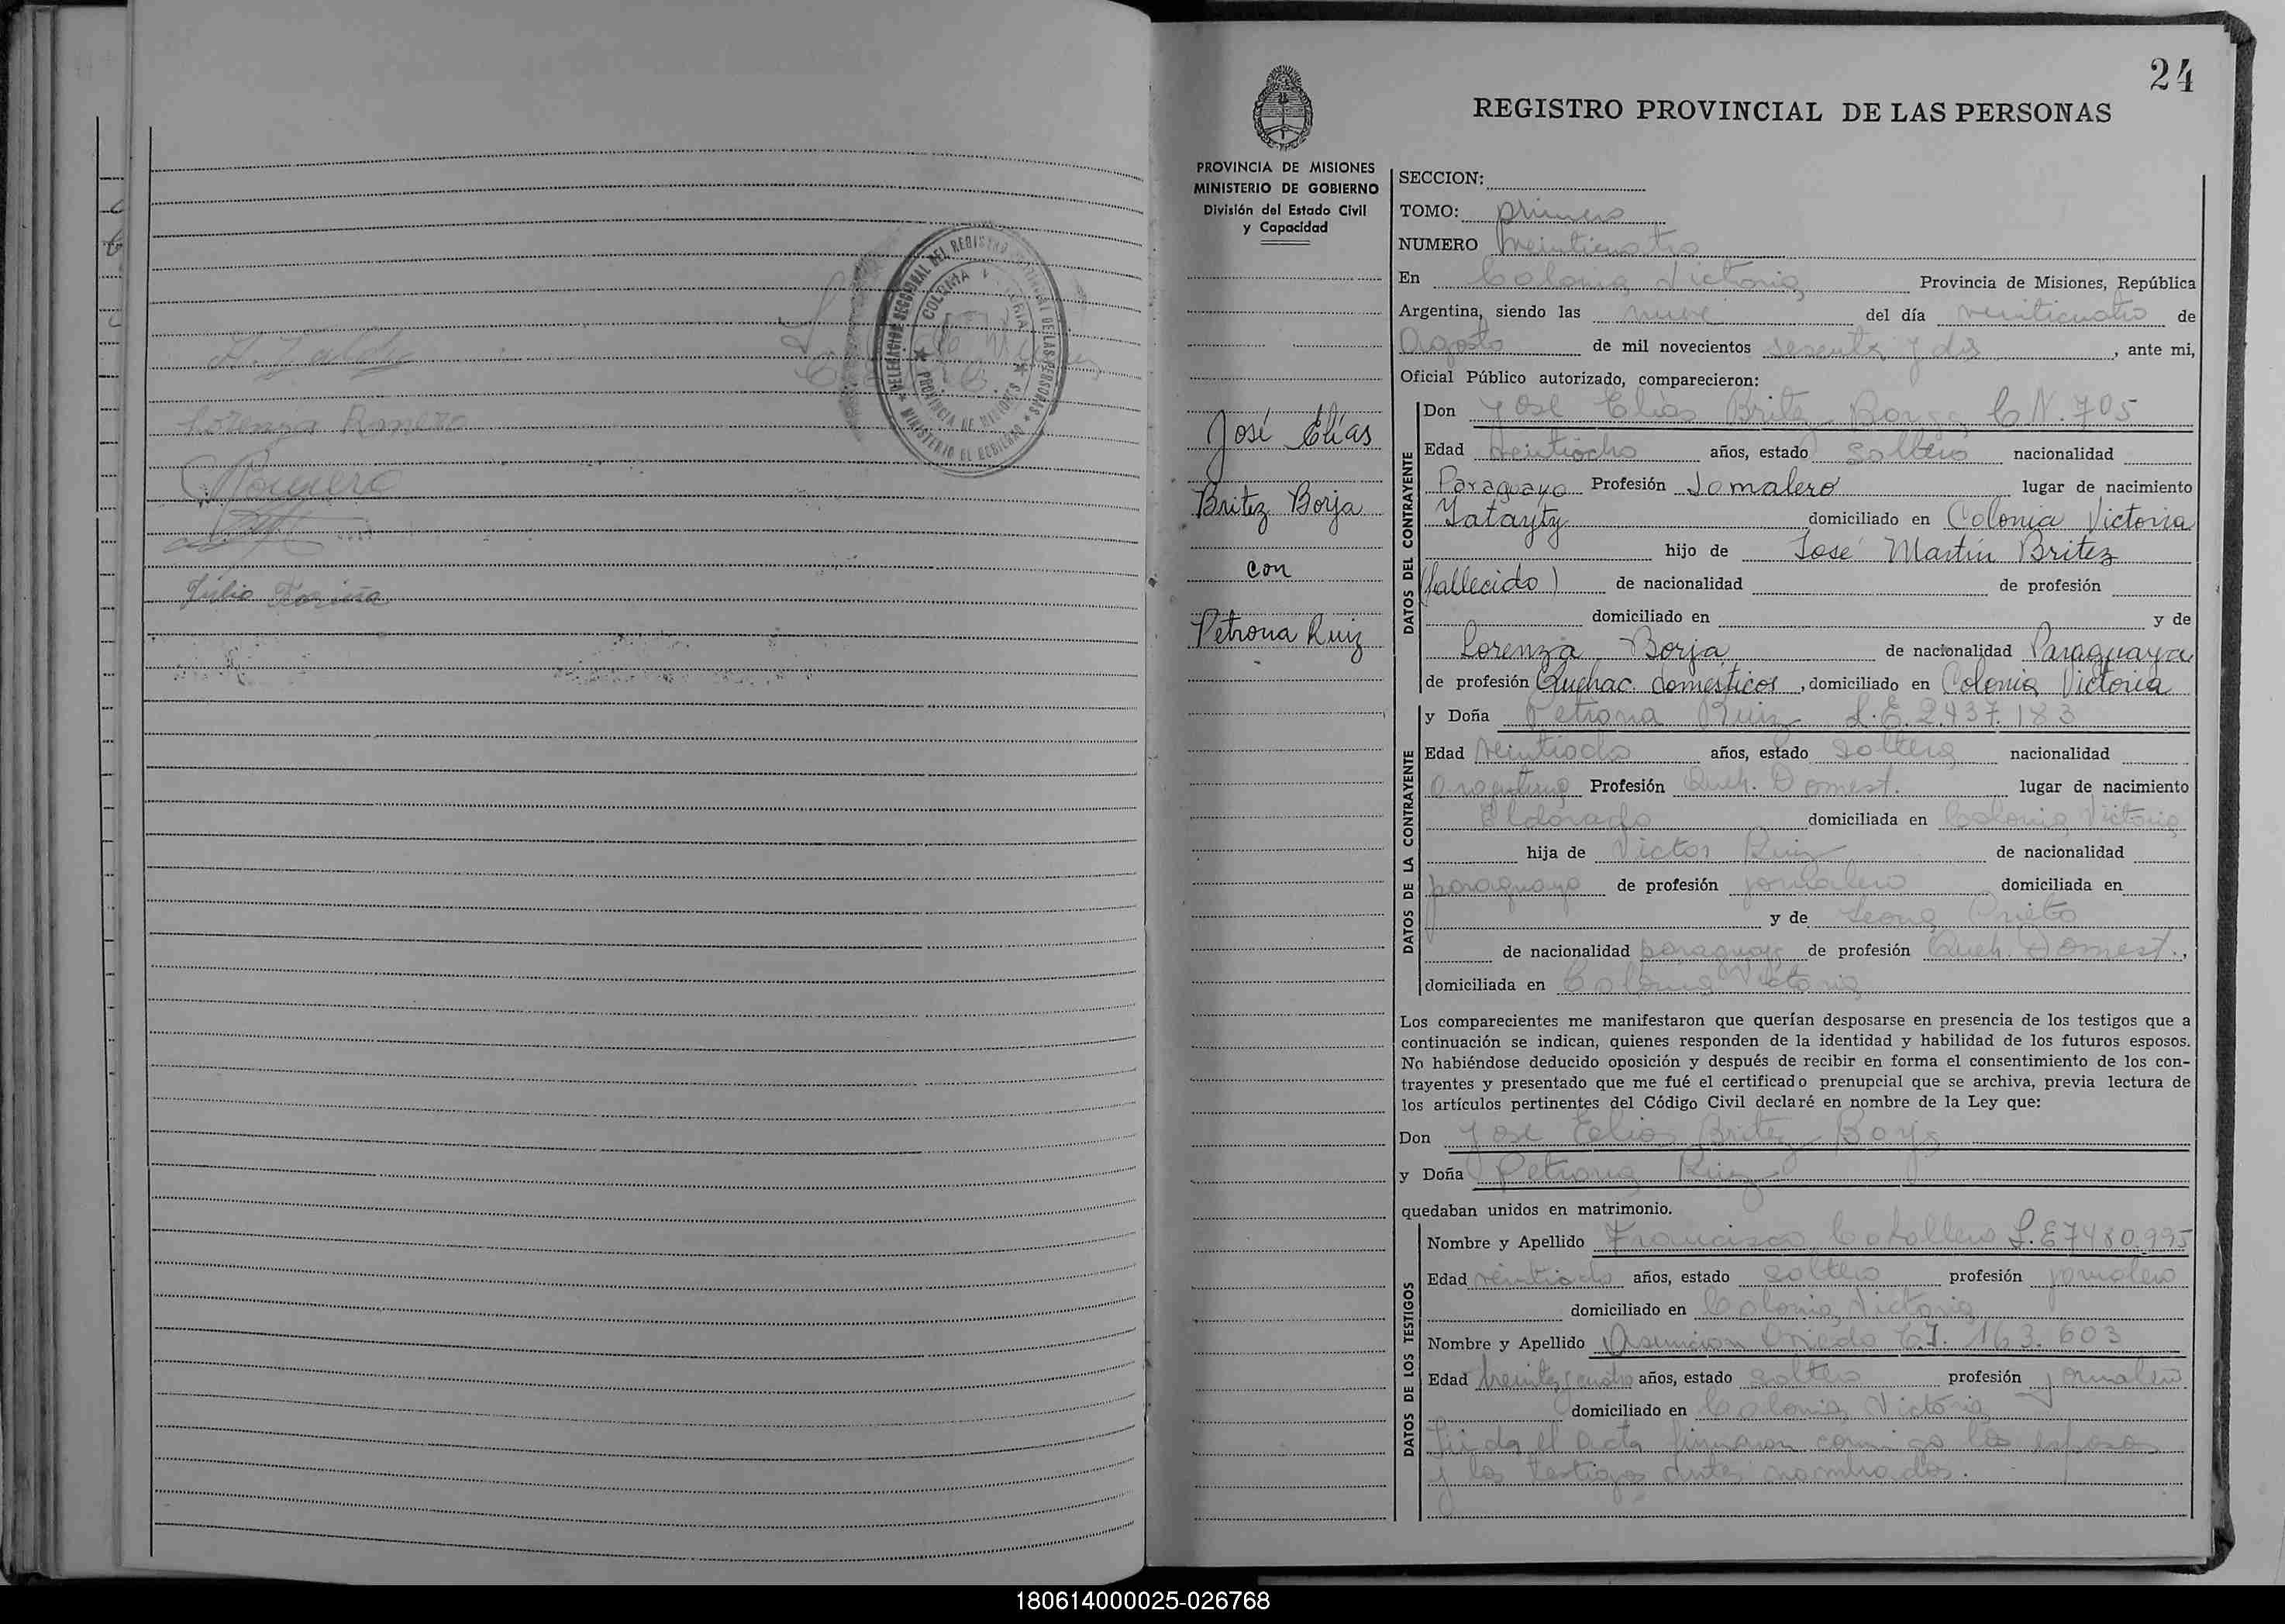 Lorenza Romero
Romero
Julio Fariña
DELEGACION SECCIONAL DEL REGISTRO PROVINCIAL DE LAS PERSONAS
COLONIA VICTORIA
PROVINCIA DE MISIONES
MINISTERIO DE GOBIERNO
24
REGISTRO PROVINCIAL DE LAS PERSONAS
PROVINCIA DE MISIONES
MINISTERIO DE GOBIERNO
División del Estado Civil
y Capacidad
José Elías
Britez Borja
con
Petrona Ruiz
SECCION:
TOMO: primero
NUMERO Veinticuatro
En Colonia Victoria Provincia de Misiones, República
Argentina, siendo las nueve del día veinticuatro de
Agosto de mil novecientos sesenta y dos, ante mi,
Oficial Público autorizado, comparecieron:
DATOS DEL CONTRAYENTE
Don José Elías Britez Borja C.N. 705
Edad Veintiocho años, estado soltero nacionalidad
Paraguayo Profesión Jornalero lugar de nacimiento
Yatayty domiciliado en Colonia Victoria
hijo de José Martín Britez
(fallecido) de nacionalidad de profesión
domiciliado en y de
Lorenza Borja de nacionalidad Paraguaya
de profesión Quehac. domesticos, domiciliado en Colonia Victoria
DATOS DE LA CONTRAYENTE
y Doña Petrona Ruiz L.E. 2.437.183
Edad años, estado soltera nacionalidad
argentina Profesión Queh. Domest. lugar de nacimiento
Eldorado domiciliada en Colonia Victoria
hija de Victor Ruiz de nacionalidad
paraguayo de profesión jornalero domiciliada en
y de Leona Prieto
de nacionalidad paraguaya de profesión Queh. Domest.,
domiciliada en Colonia Victoria
Los comparecientes me manifestaron que querían desposarse en presencia de los testigos que a
continuación se indican, quienes responden de la identidad y habilidad de los futuros esposos.
No habiéndose deducido oposición y después de recibir en forma el consentimiento de los con-
trayentes y presentado que me fué el certificado prenupcial que se archiva, previa lectura de
los artículos pertinentes del Código Civil declaré en nombre de la Ley que:
Don José Elias Britez Borja
y Doña Petrona Ruiz
quedaban unidos en matrimonio.
DATOS DE LOS TESTIGOS
Nombre y Apellido Francisco Caballero L.E 7480.995
Edad años, estado soltero profesión jornalero
domiciliado en Colonia Victoria
Nombre y Apellido Asuncion Oviedo C.I. 163.603
Edad treinta y cuatro años, estado soltero profesión jornalero
domiciliado en Colonia Victoria
Leida el acta firmaron conmigo los esposos
y los testigos antes nombrados.
180614000025-026768